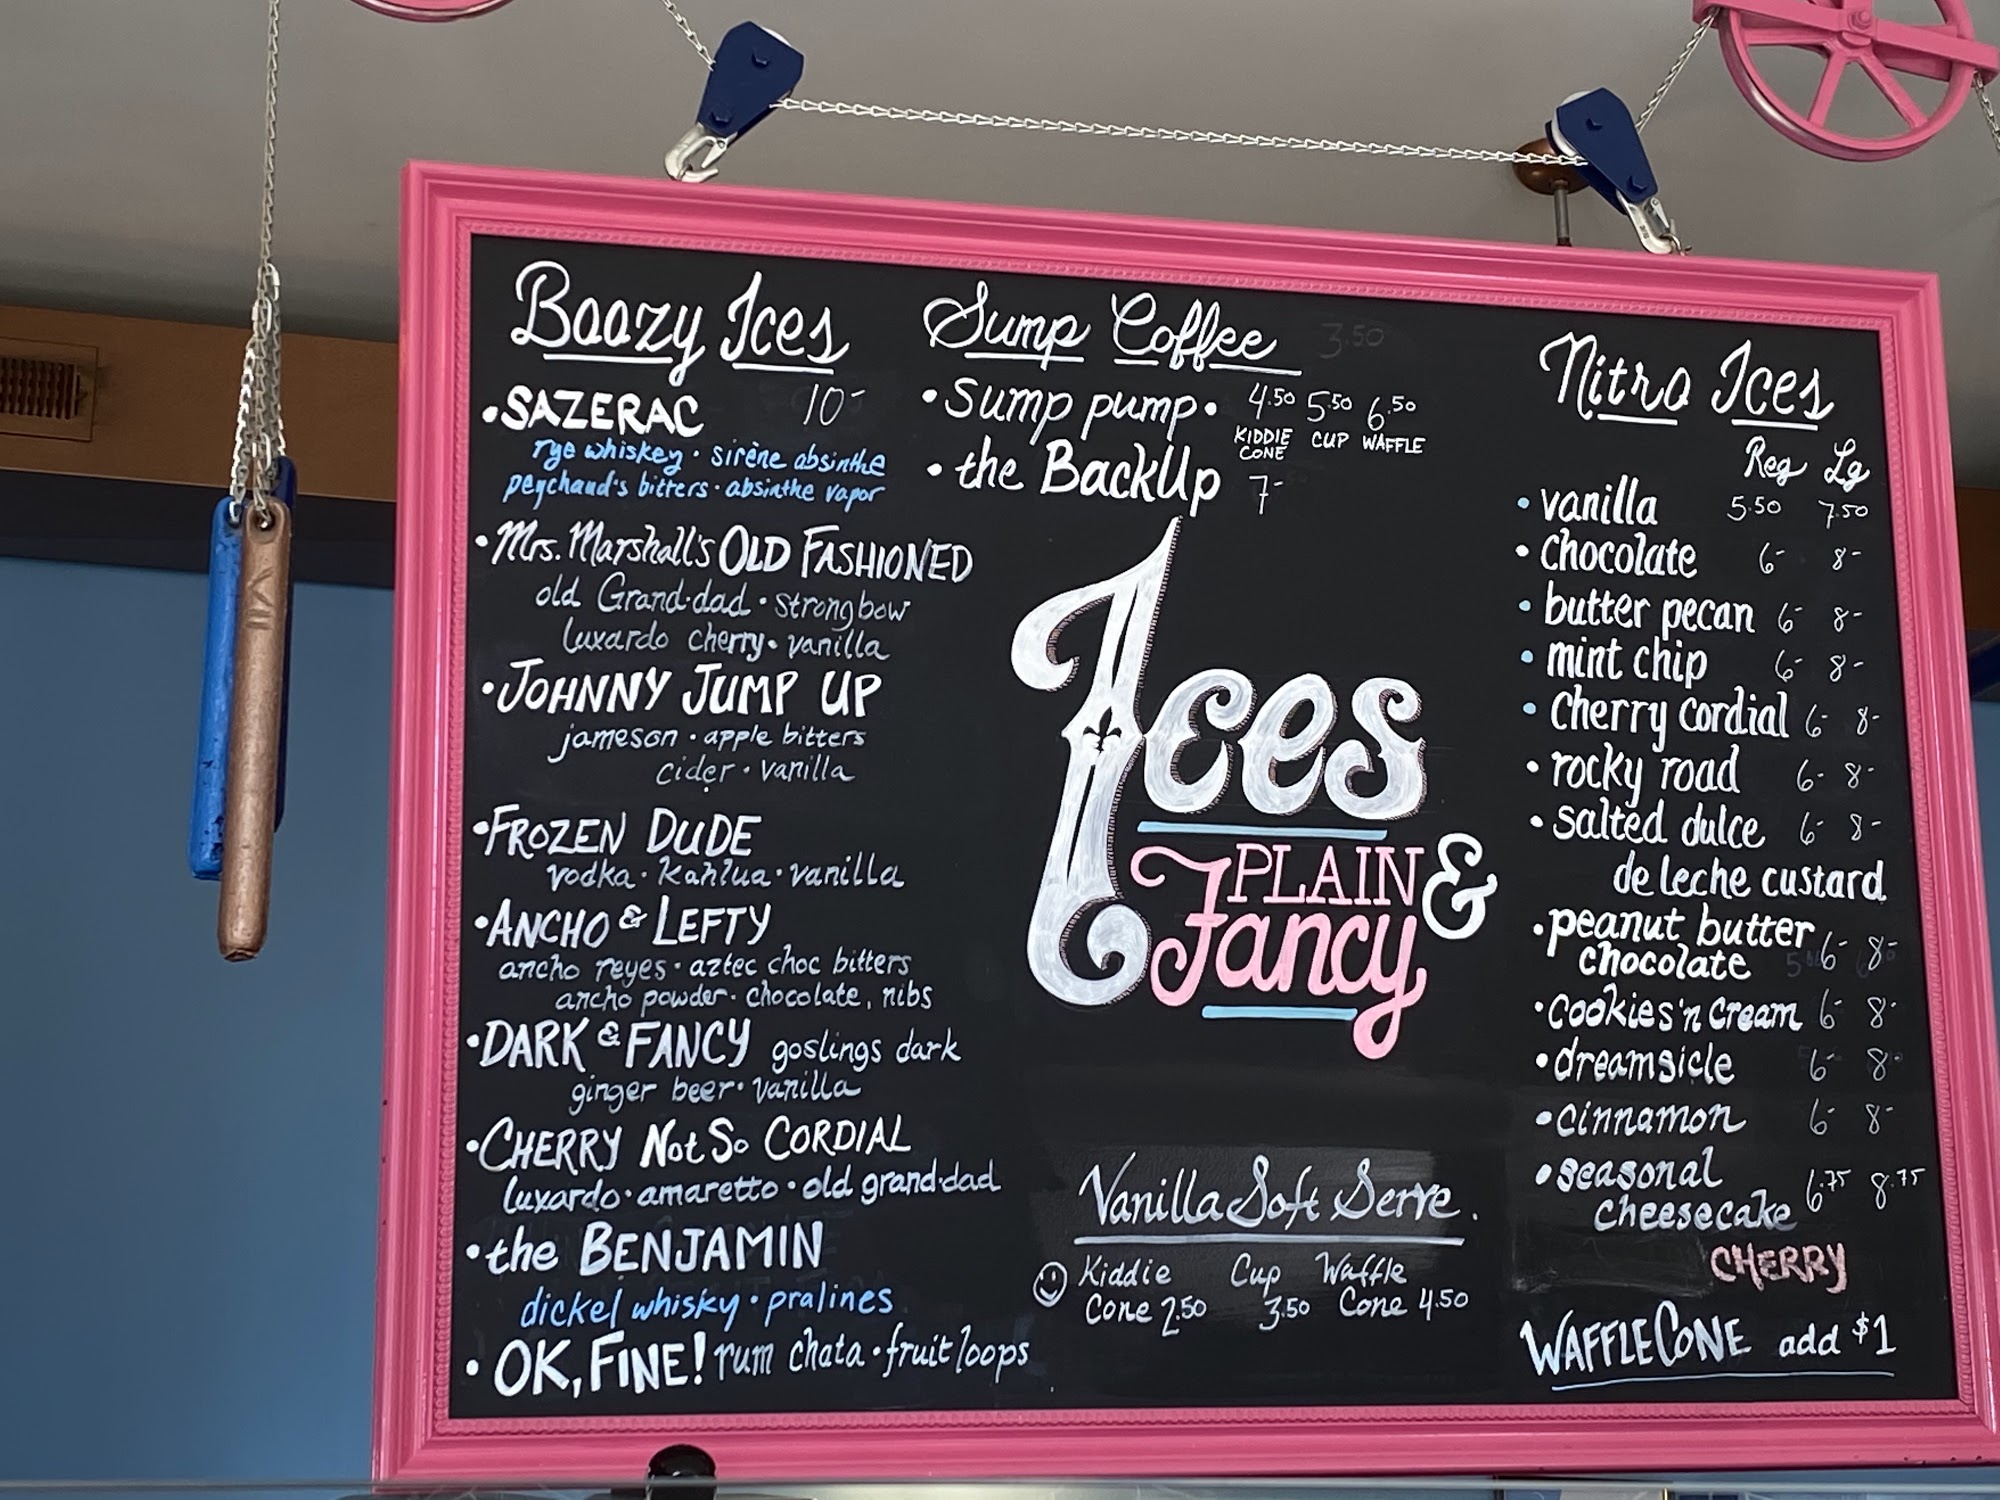 Boozy Ices
• SAZERAC 10-
rye whiskey • sirène absinthe
peychaud's bitters • absinthe vapor
• Mrs. Marshall's OLD FASHIONED
old Grand•dad • strongbow
luxardo cherry • vanilla
• JOHNNY JUMP UP
jameson • apple bitters
cider • vanilla
• FROZEN DUDE
vodka • kahlua • vanilla
• ANCHO & LEFTY
ancho reyes • aztec choc bitters
ancho powder • chocolate, nibs
• DARK & FANCY goslings dark
ginger beer • vanilla
• CHERRY Not So CORDIAL
luxardo • amaretto • old grand•dad
• the BENJAMIN
dickel whisky • pralines
• OK, FINE! rum chata • fruit loops
Sump Coffee 3.50
• Sump pump • 4.50 5.50 6.50
KIDDIE CUP WAFFLE
CONE
• the BackUp 7-
Ices
PLAIN &
Fancy
Vanilla Soft Serve.
Kiddie Cup Waffle
Cone 2.50 3.50 Cone 4.50
Nitro Ices
Reg Lg
• vanilla 5.50 7.50
• chocolate 6- 8-
• butter pecan 6- 8-
• mint chip 6- 8-
• cherry cordial 6- 8-
• rocky road 6- 8-
• salted dulce 6- 8-
de leche custard
• peanut butter 6- 8-
chocolate
• cookies 'n cream 6- 8-
• dreamsicle 6- 8-
• cinnamon 6- 8-
• seasonal 6.75 8.75
cheesecake
CHERRY
WAFFLE CONE add $1
VII